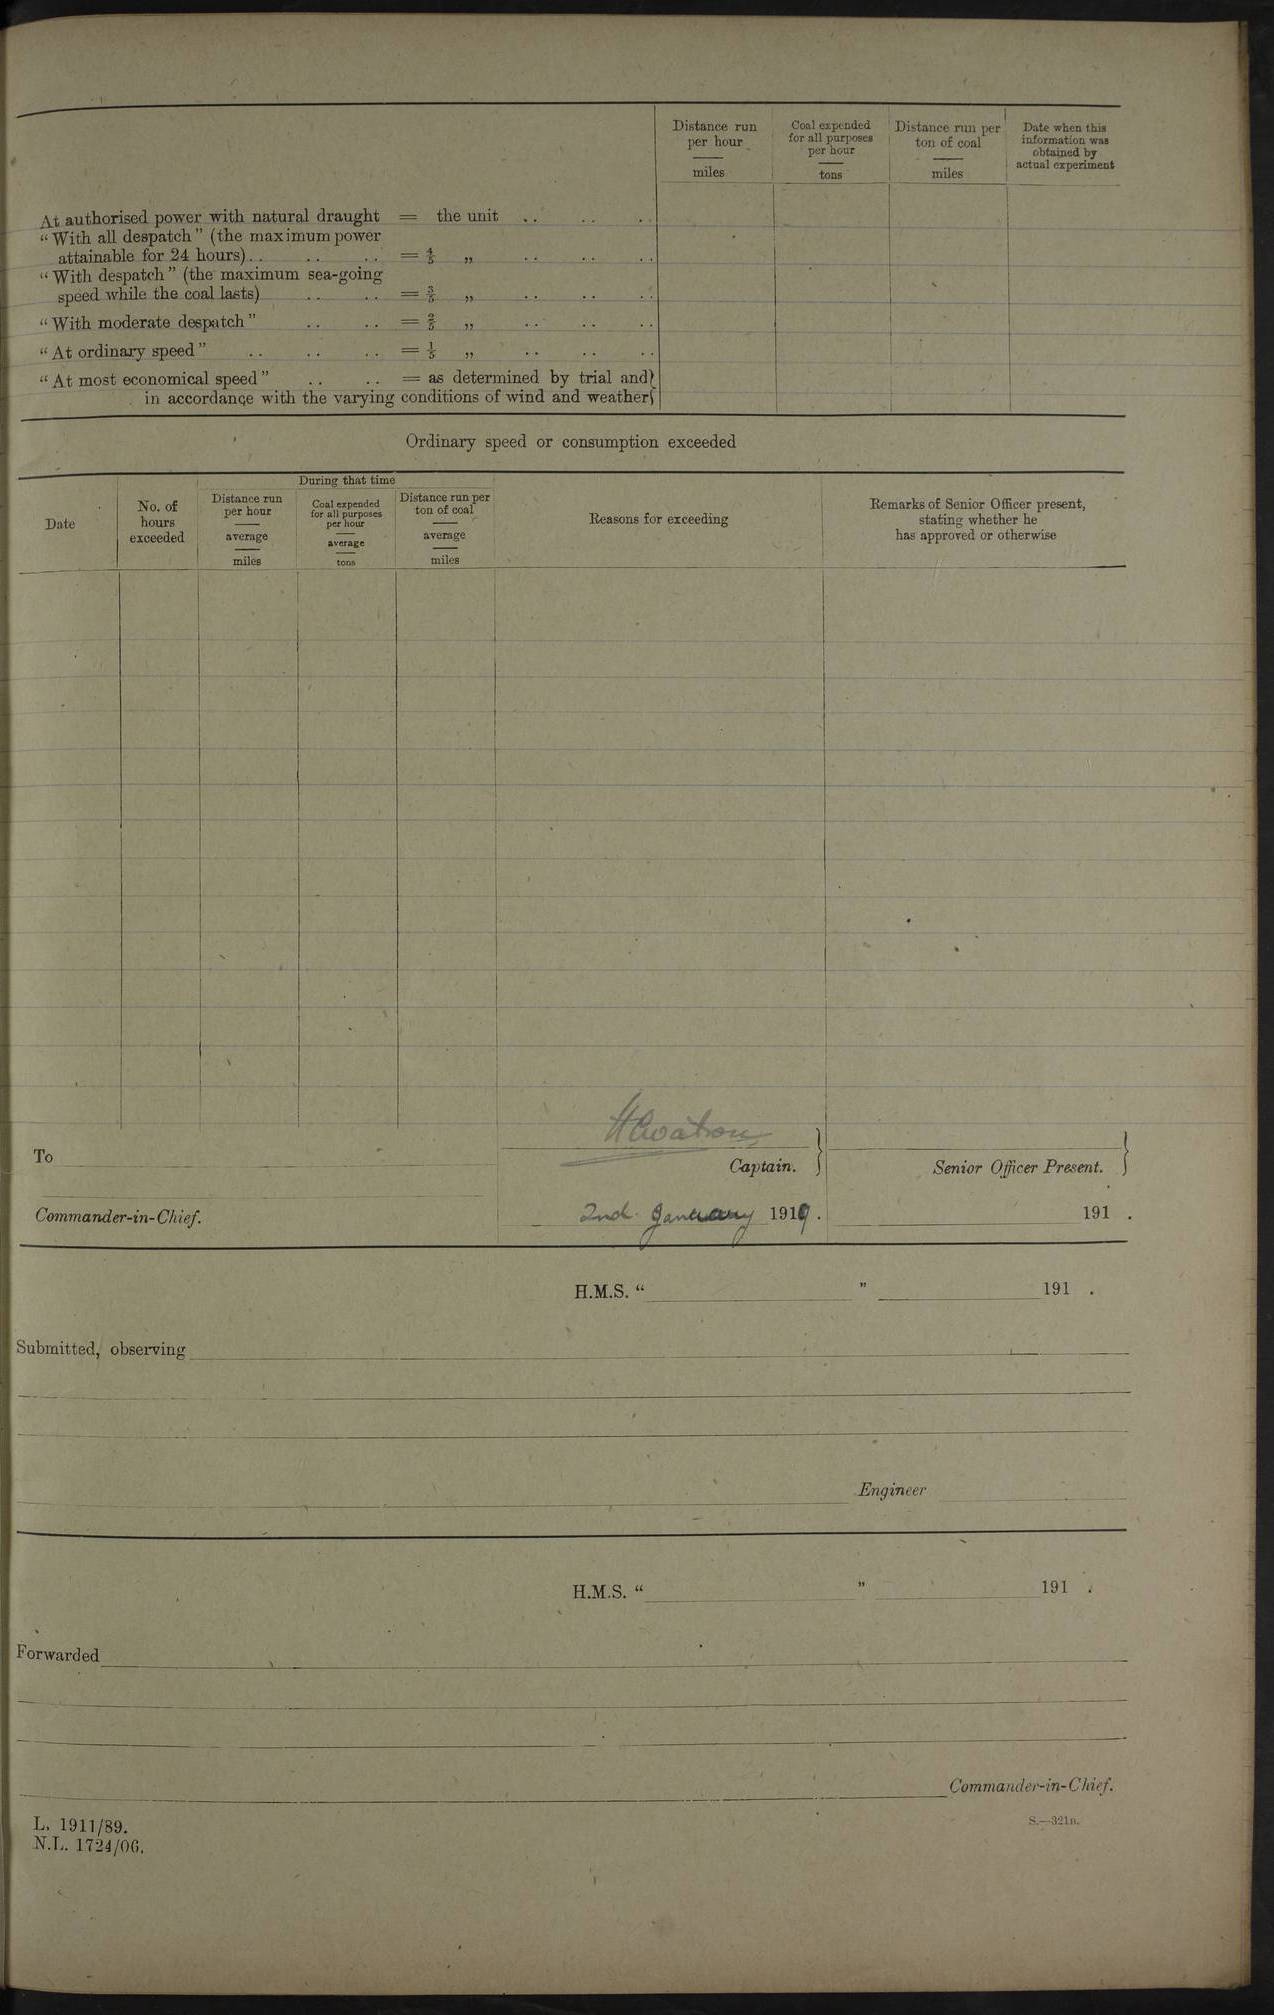 Distance run per hour — miles
Coal expended for all purposes per hour — tons
Distance run per ton of coal — miles
Date when this information was obtained by actual experiment
At authorised power with natural draught = the unit .. .. ..
“With all despatch” (the maximum power
attainable for 24 hours).. .. .. = 4/5 „ .. .. ..
“With despatch” (the maximum sea-going
speed while the coal lasts) .. .. = 3/5 „ .. .. ..
“With moderate despatch” .. .. = 2/5 „ .. .. ..
“At ordinary speed” .. .. .. = 1/5 „ .. .. ..
“At most economical speed” .. .. = as determined by trial and}
in accordance with the varying conditions of wind and weather}
Ordinary speed or consumption exceeded
During that time
Date
No. of hours exceeded
Distance run per hour — average — miles
Coal expended for all purposes per hour — average — tons
Distance run per ton of coal — average — miles
Reasons for exceeding
Remarks of Senior Officer present, stating whether he has approved or otherwise
To
Captain. }
Senior Officer Present. }
Commander-in-Chief.
2nd January 1919.
191 .
H.M.S. “ ” 191 .
Submitted, observing
Engineer
H.M.S. “ ” 191 .
Forwarded
Commander-in-Chief.
L. 1911/89.
N.L. 1724/06.